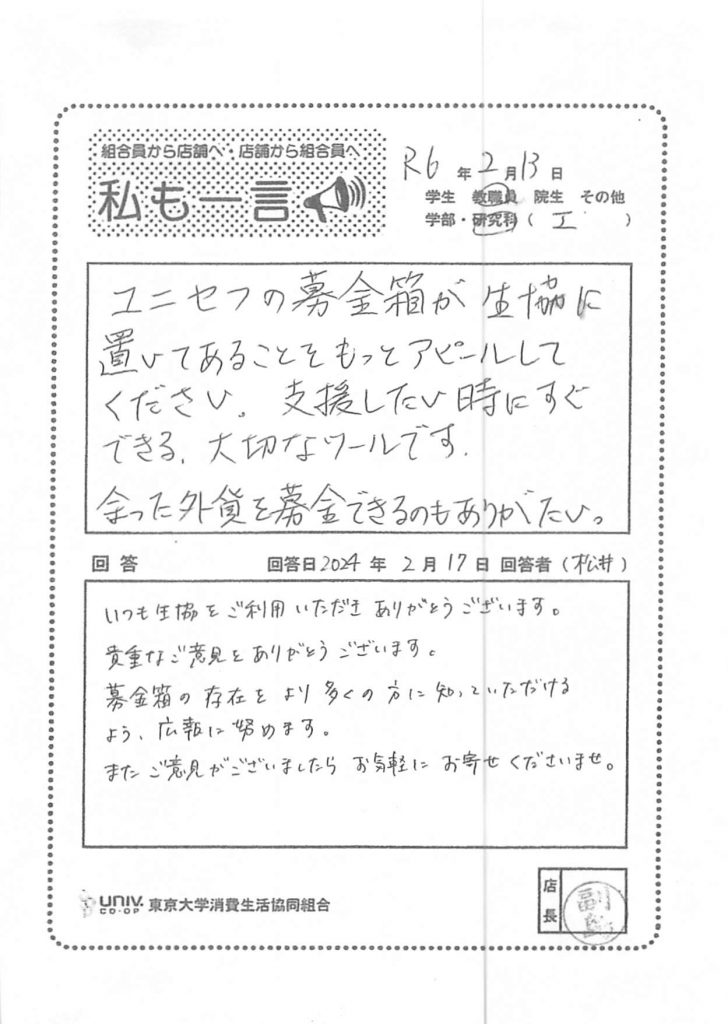 組合員から店舗へ・店舗から組合員へ
私も一言
R6年2月13日
学生 教職員 院生 その他
学部・研究科( 工 )
ユニセフの募金箱が生協に
置いてあることをもっとアピールして
ください。支援したい時にすぐ
できる、大切なツールです.
余った外貨を募金できるのもありがたい。
回答 回答日2024年2月17日 回答者(松井)
いつも生協をご利用いただきありがとうございます。
貴重なご意見をありがとうございます。
募金箱の存在をより多くの方に知っていただける
よう、広報に努めます。
またご意見がございましたらお気軽にお寄せくださいませ。
UNIV.
CO-OP 東京大学消費生活協同組合
店長
副